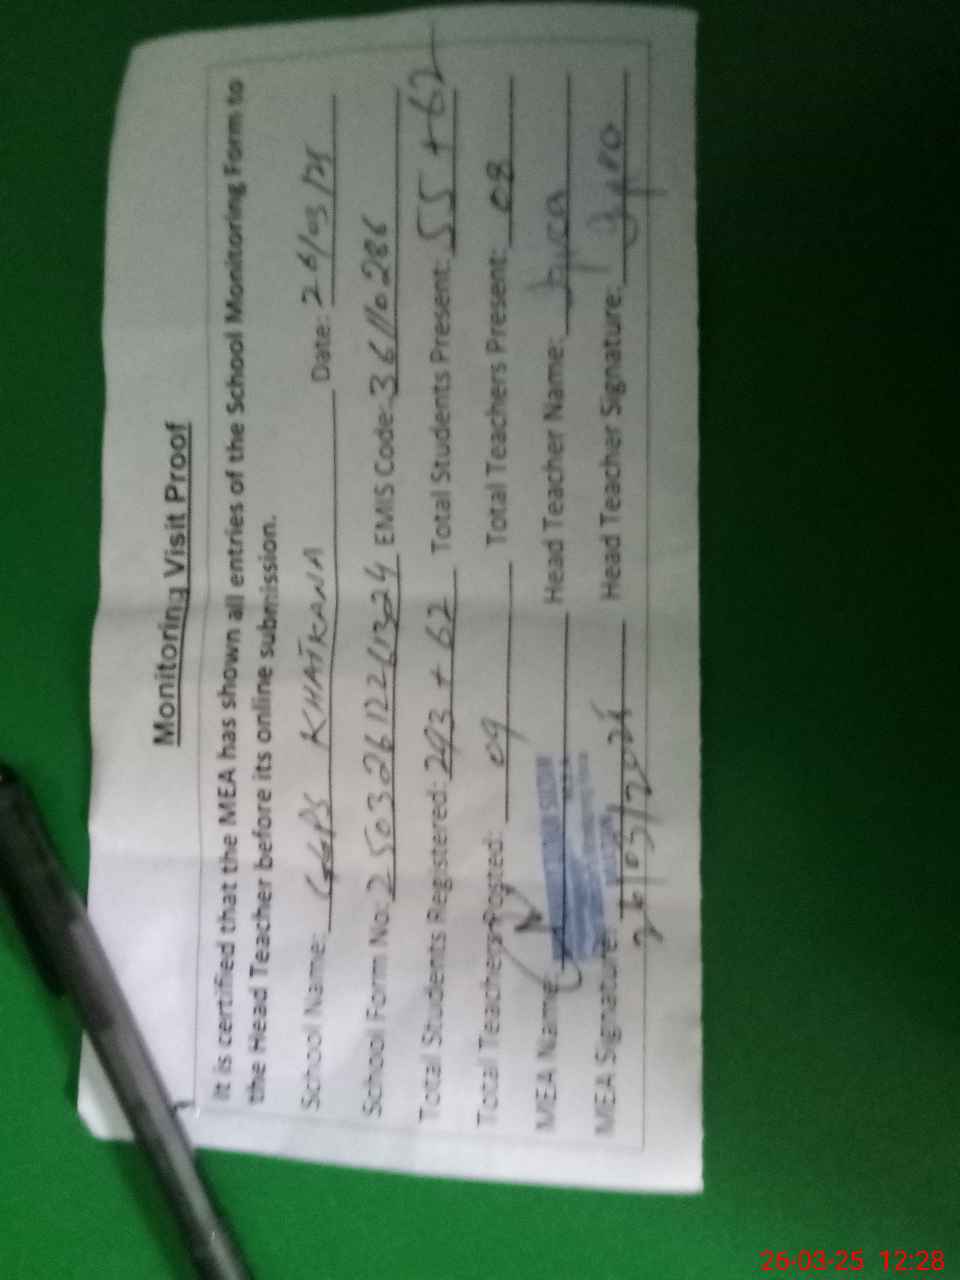 Monitoring Visit Proof
It is certified that the MEA has shown all entries of the School Monitoring Form to
the Head Teacher before its online submission.
School Name: GGPS KHATKANA Date: 26/03/25
School Form No: EMIS Code: 36110286
Total Students Registered: 293 + 62 Total Students Present: 55 + 62
Total Teachers Posted: 09 Total Teachers Present: 08
MEA Name: Head Teacher Name:
MEA Signature: Head Teacher Signature:
26/03/2025
26-03-25 12:28